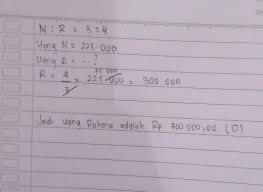 N : R = 3 : 4
Uang N = 225 000
Uang R = ... ?
R = 4/3 × 225 000 = 300 000
Jadi uang Rahma adalah Rp 300 000,00 (D)